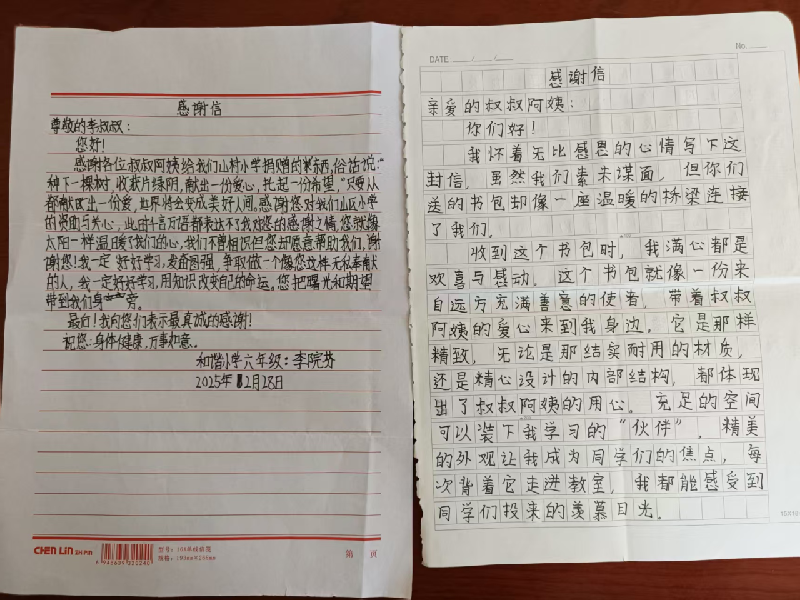 感谢信
尊敬的李叔叔:
您好!
感谢各位叔叔阿姨给我们山村小学捐赠的东西,俗话说:"
种下一棵树,收获片绿阴,献出一份爱心,托起一份希望,"只要人人
都献出一份爱,世界将会变成美好人间。感谢您对我们山区小学
的资助与关心,此由千言万语都表达不了我对您的感谢之情,您就像
太阳一样温暖了我们的心,我们不曾相识但您却愿意帮助我们,谢
谢您!我一定好好学习,发奋图强,争取做一个像您这样无私奉献
的人,我一定好好学习,用知识改变自己的命运。您把曙光和期望
带到我们身旁。
最后!我向您们表示最真诚的感谢!
祝您:身体健康,万事如意。
和谐小学六年级:李院芬
2025年12月28日
CHEN LIN ZH PIN
第 页
DATE
No
感谢信
亲爱的叔叔阿姨:
你们好!
我怀着无比感恩的心情写下这
封信,虽然我们素来谋面,但你们
送的书包却像一座温暖的桥梁连接
了我们。
收到这个书包时,我满心都是
欢喜与感动。这个书包就像一份来
自远方充满善意的使者,带着叔叔
阿姨的爱心来到我身边,它是那样
精致,无论是那结实耐用的材质,
还是精心设计的内部结构,都体现
出了叔叔阿姨的用心。充足的空间
可以装下我学习的"伙伴",精美
的外观让我成为同学们的焦点,每
次背着它走进教室,我都能感受到
同学们投来的羡慕目光。